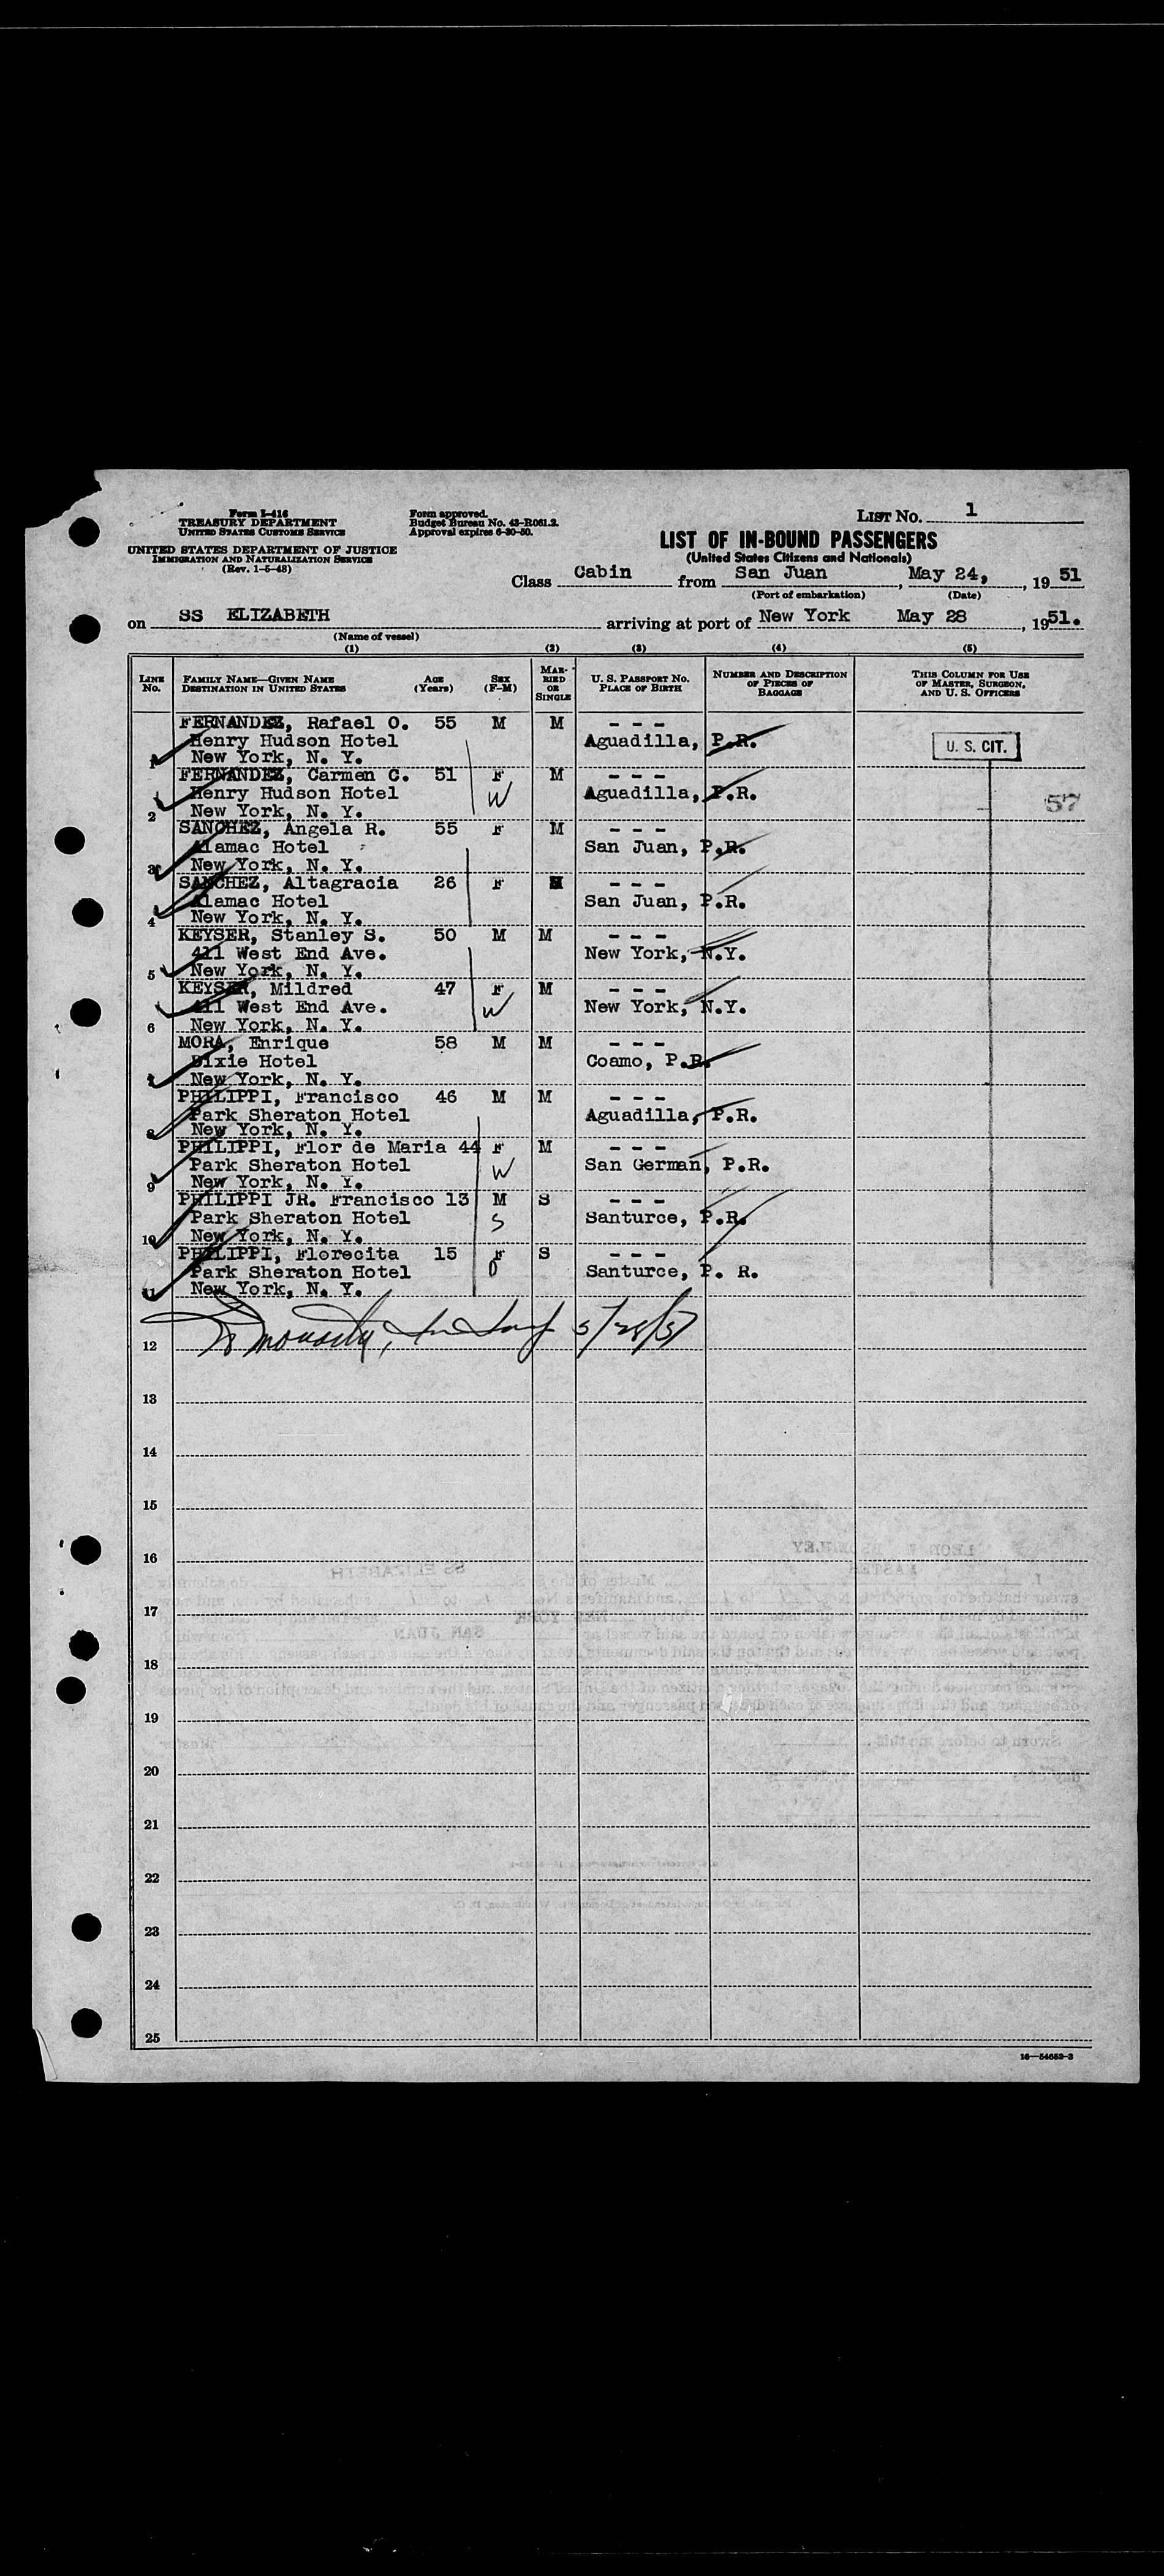 Form I-416
TREASURY DEPARTMENT
UNITED STATES CUSTOMS SERVICE
UNITED STATES DEPARTMENT OF JUSTICE
IMMIGRATION AND NATURALIZATION SERVICE
(Rev. 1-5-48)
Form approved.
Budget Bureau No. 43-R061.2.
Approval expires 6-30-50.
LIST No. 1
LIST OF IN-BOUND PASSENGERS
(United States Citizens and Nationals)
Class Cabin from San Juan, May 24, , 19 51
(Port of embarkation) (Date)
on SS ELIZABETH arriving at port of New York May 28 , 1951.
(Name of vessel)
(1) (2) (3) (4) (5)
LINE No. FAMILY NAME—GIVEN NAME DESTINATION IN UNITED STATES AGE (Years) SEX (F-M) MARRIED OR SINGLE U. S. PASSPORT NO. PLACE OF BIRTH NUMBER AND DESCRIPTION OF PIECES OF BAGGAGE THIS COLUMN FOR USE OF MASTER, SURGEON, AND U. S. OFFICERS
FERNANDEZ, Rafael O. 55 M M - - -
Henry Hudson Hotel Aguadilla, P.R. U. S. CIT.
1 New York, N. Y.
FERNANDEZ, Carmen C. 51 F M - - -
Henry Hudson Hotel W Aguadilla, P.R. 57
2 New York, N. Y.
SANCHEZ, Angela R. 55 F M - - -
Alamac Hotel San Juan, P.R.
3 New York, N. Y.
SANCHEZ, Altagracia 26 F - - -
Alamac Hotel San Juan, P.R.
4 New York, N. Y.
KEYSER, Stanley S. 50 M M - - -
411 West End Ave. New York, N.Y.
5 New York, N. Y.
KEYSER, Mildred 47 F M - - -
411 West End Ave. W New York, N.Y.
6 New York, N. Y.
MORA, Enrique 58 M M - - -
Dixie Hotel Coamo, P.R.
7 New York, N. Y.
PHILIPPI, Francisco 46 M M - - -
Park Sheraton Hotel Aguadilla, P.R.
8 New York, N. Y.
PHILIPPI, Flor de Maria 44 F M - - -
Park Sheraton Hotel W San German, P.R.
9 New York, N. Y.
PHILIPPI JR. Francisco 13 M S - - -
Park Sheraton Hotel S Santurce, P.R.
10 New York, N. Y.
PHILIPPI, Florecita 15 F S - - -
Park Sheraton Hotel D Santurce, P. R.
11 New York, N. Y.
5/28/51
12
13
14
15
16
17
18
19
20
21
22
23
24
25
16—54652-3